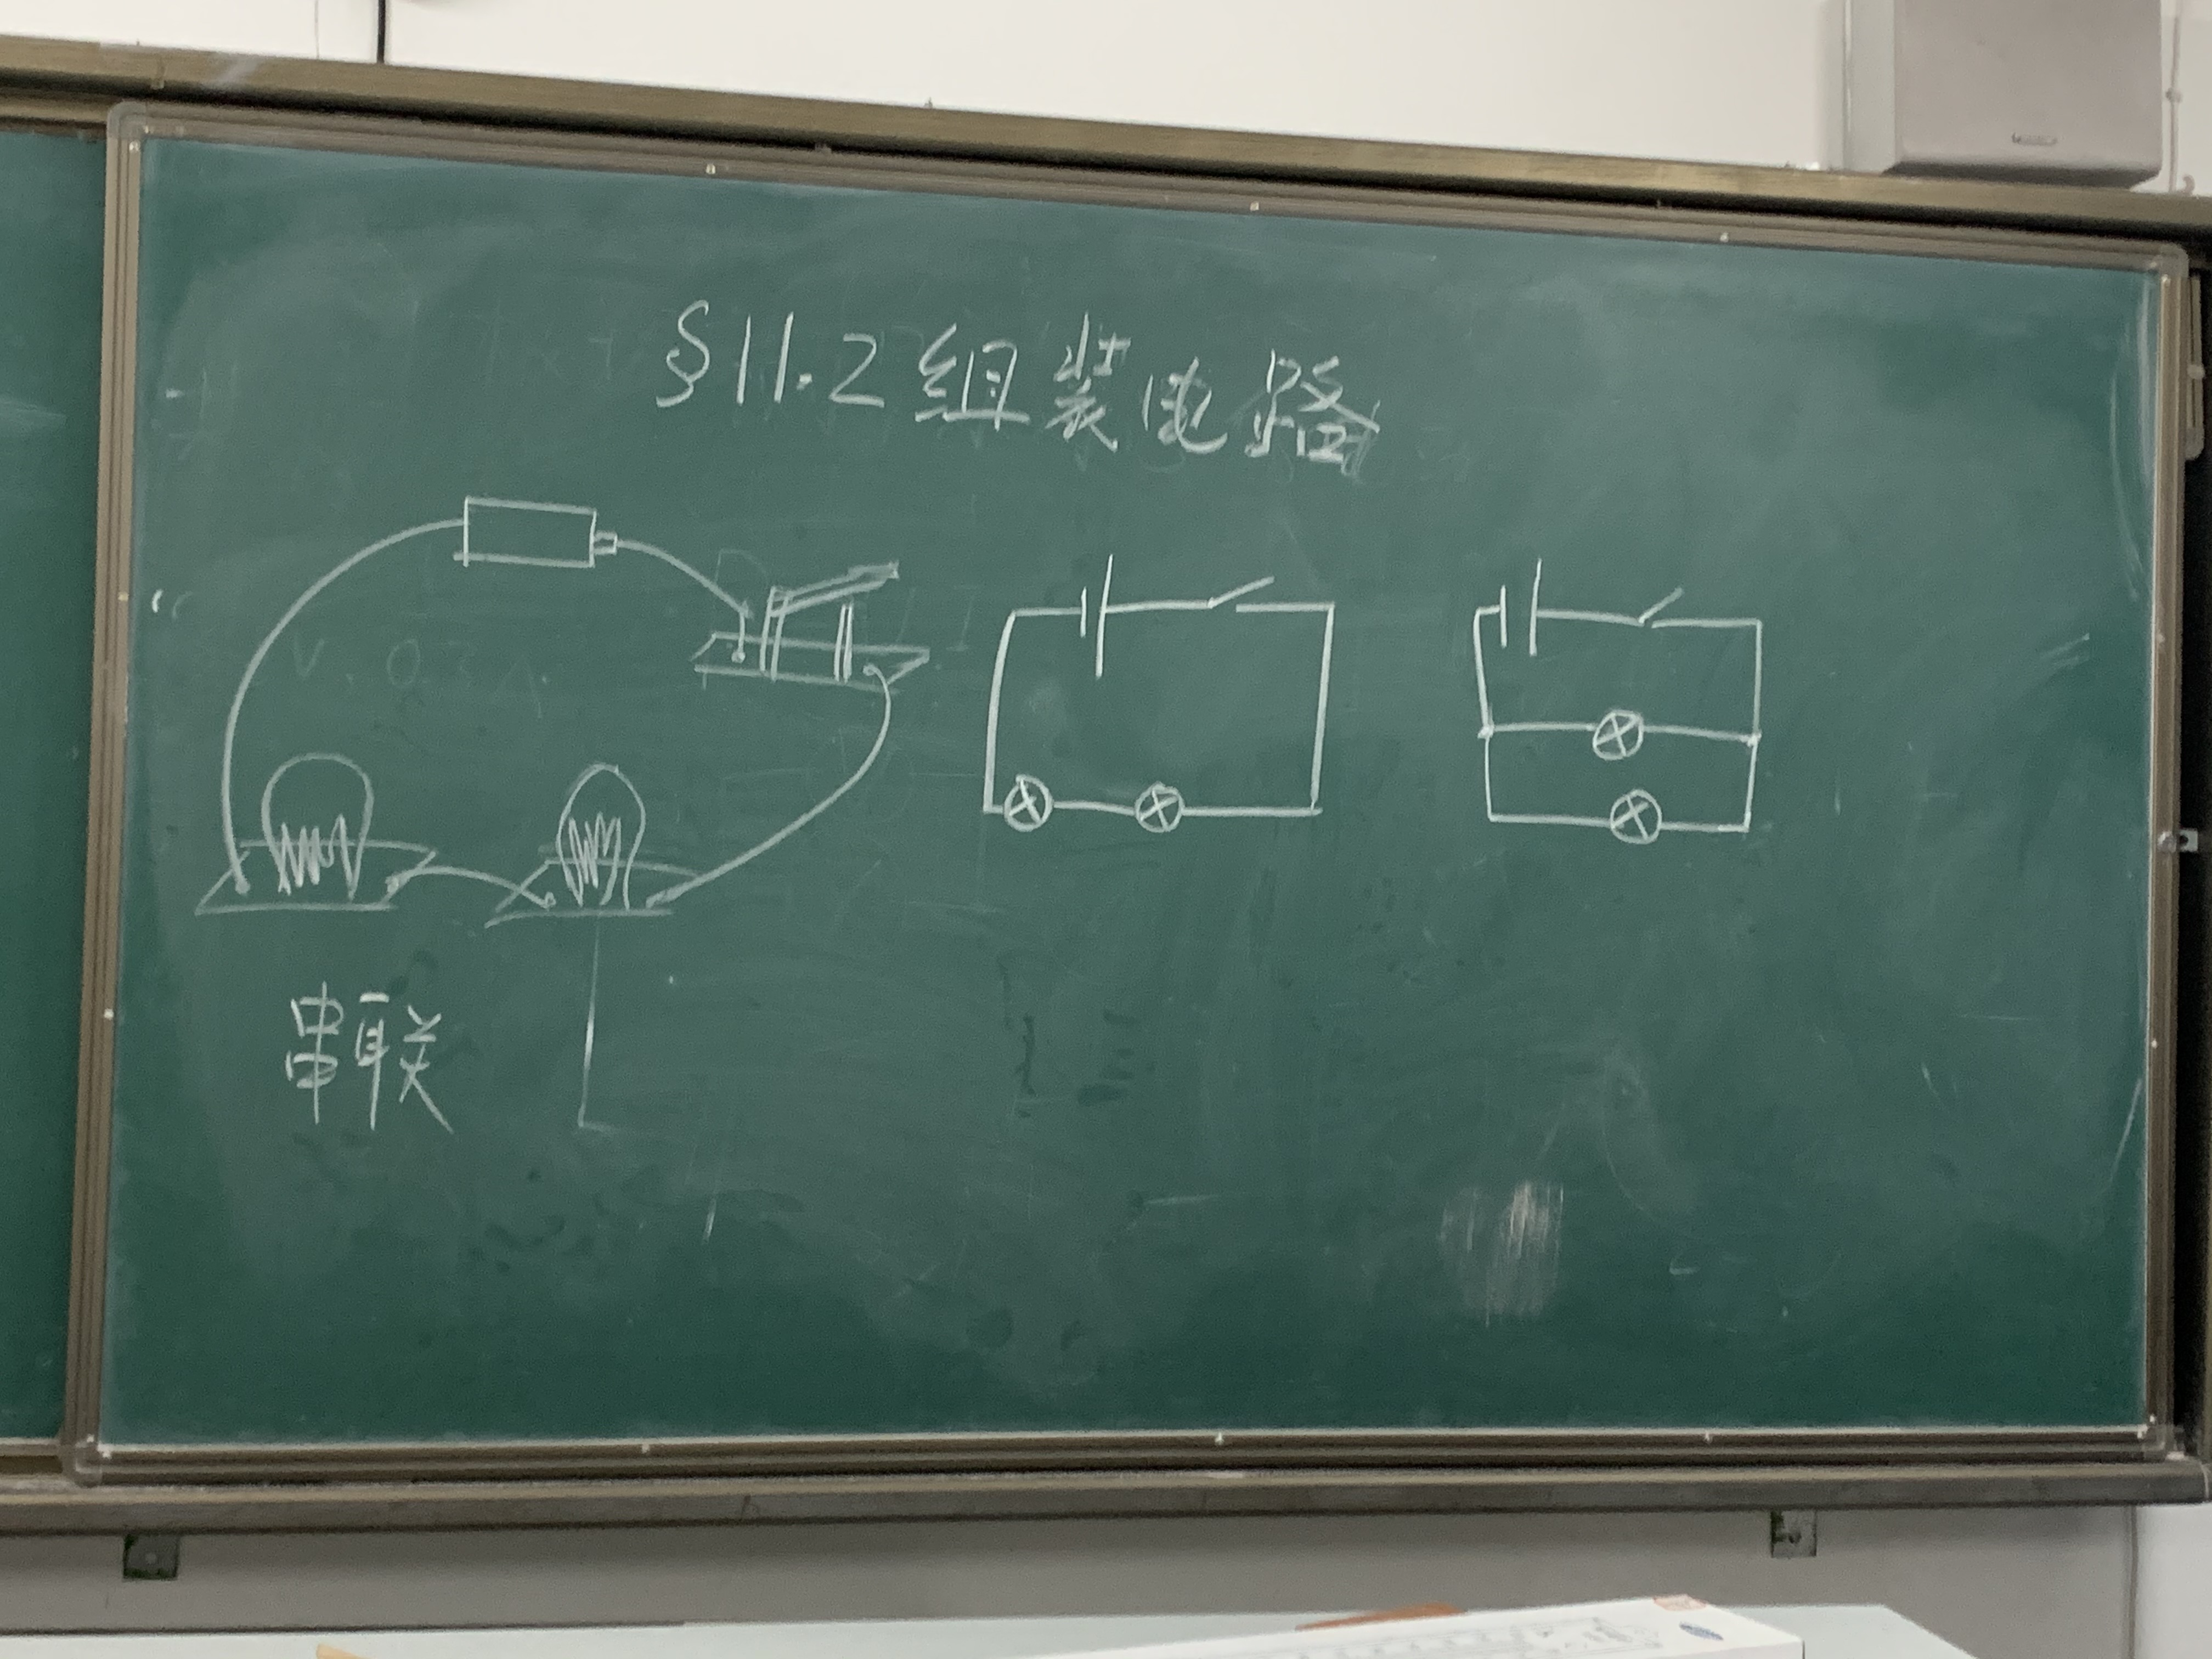 §11.2组装电路
串联